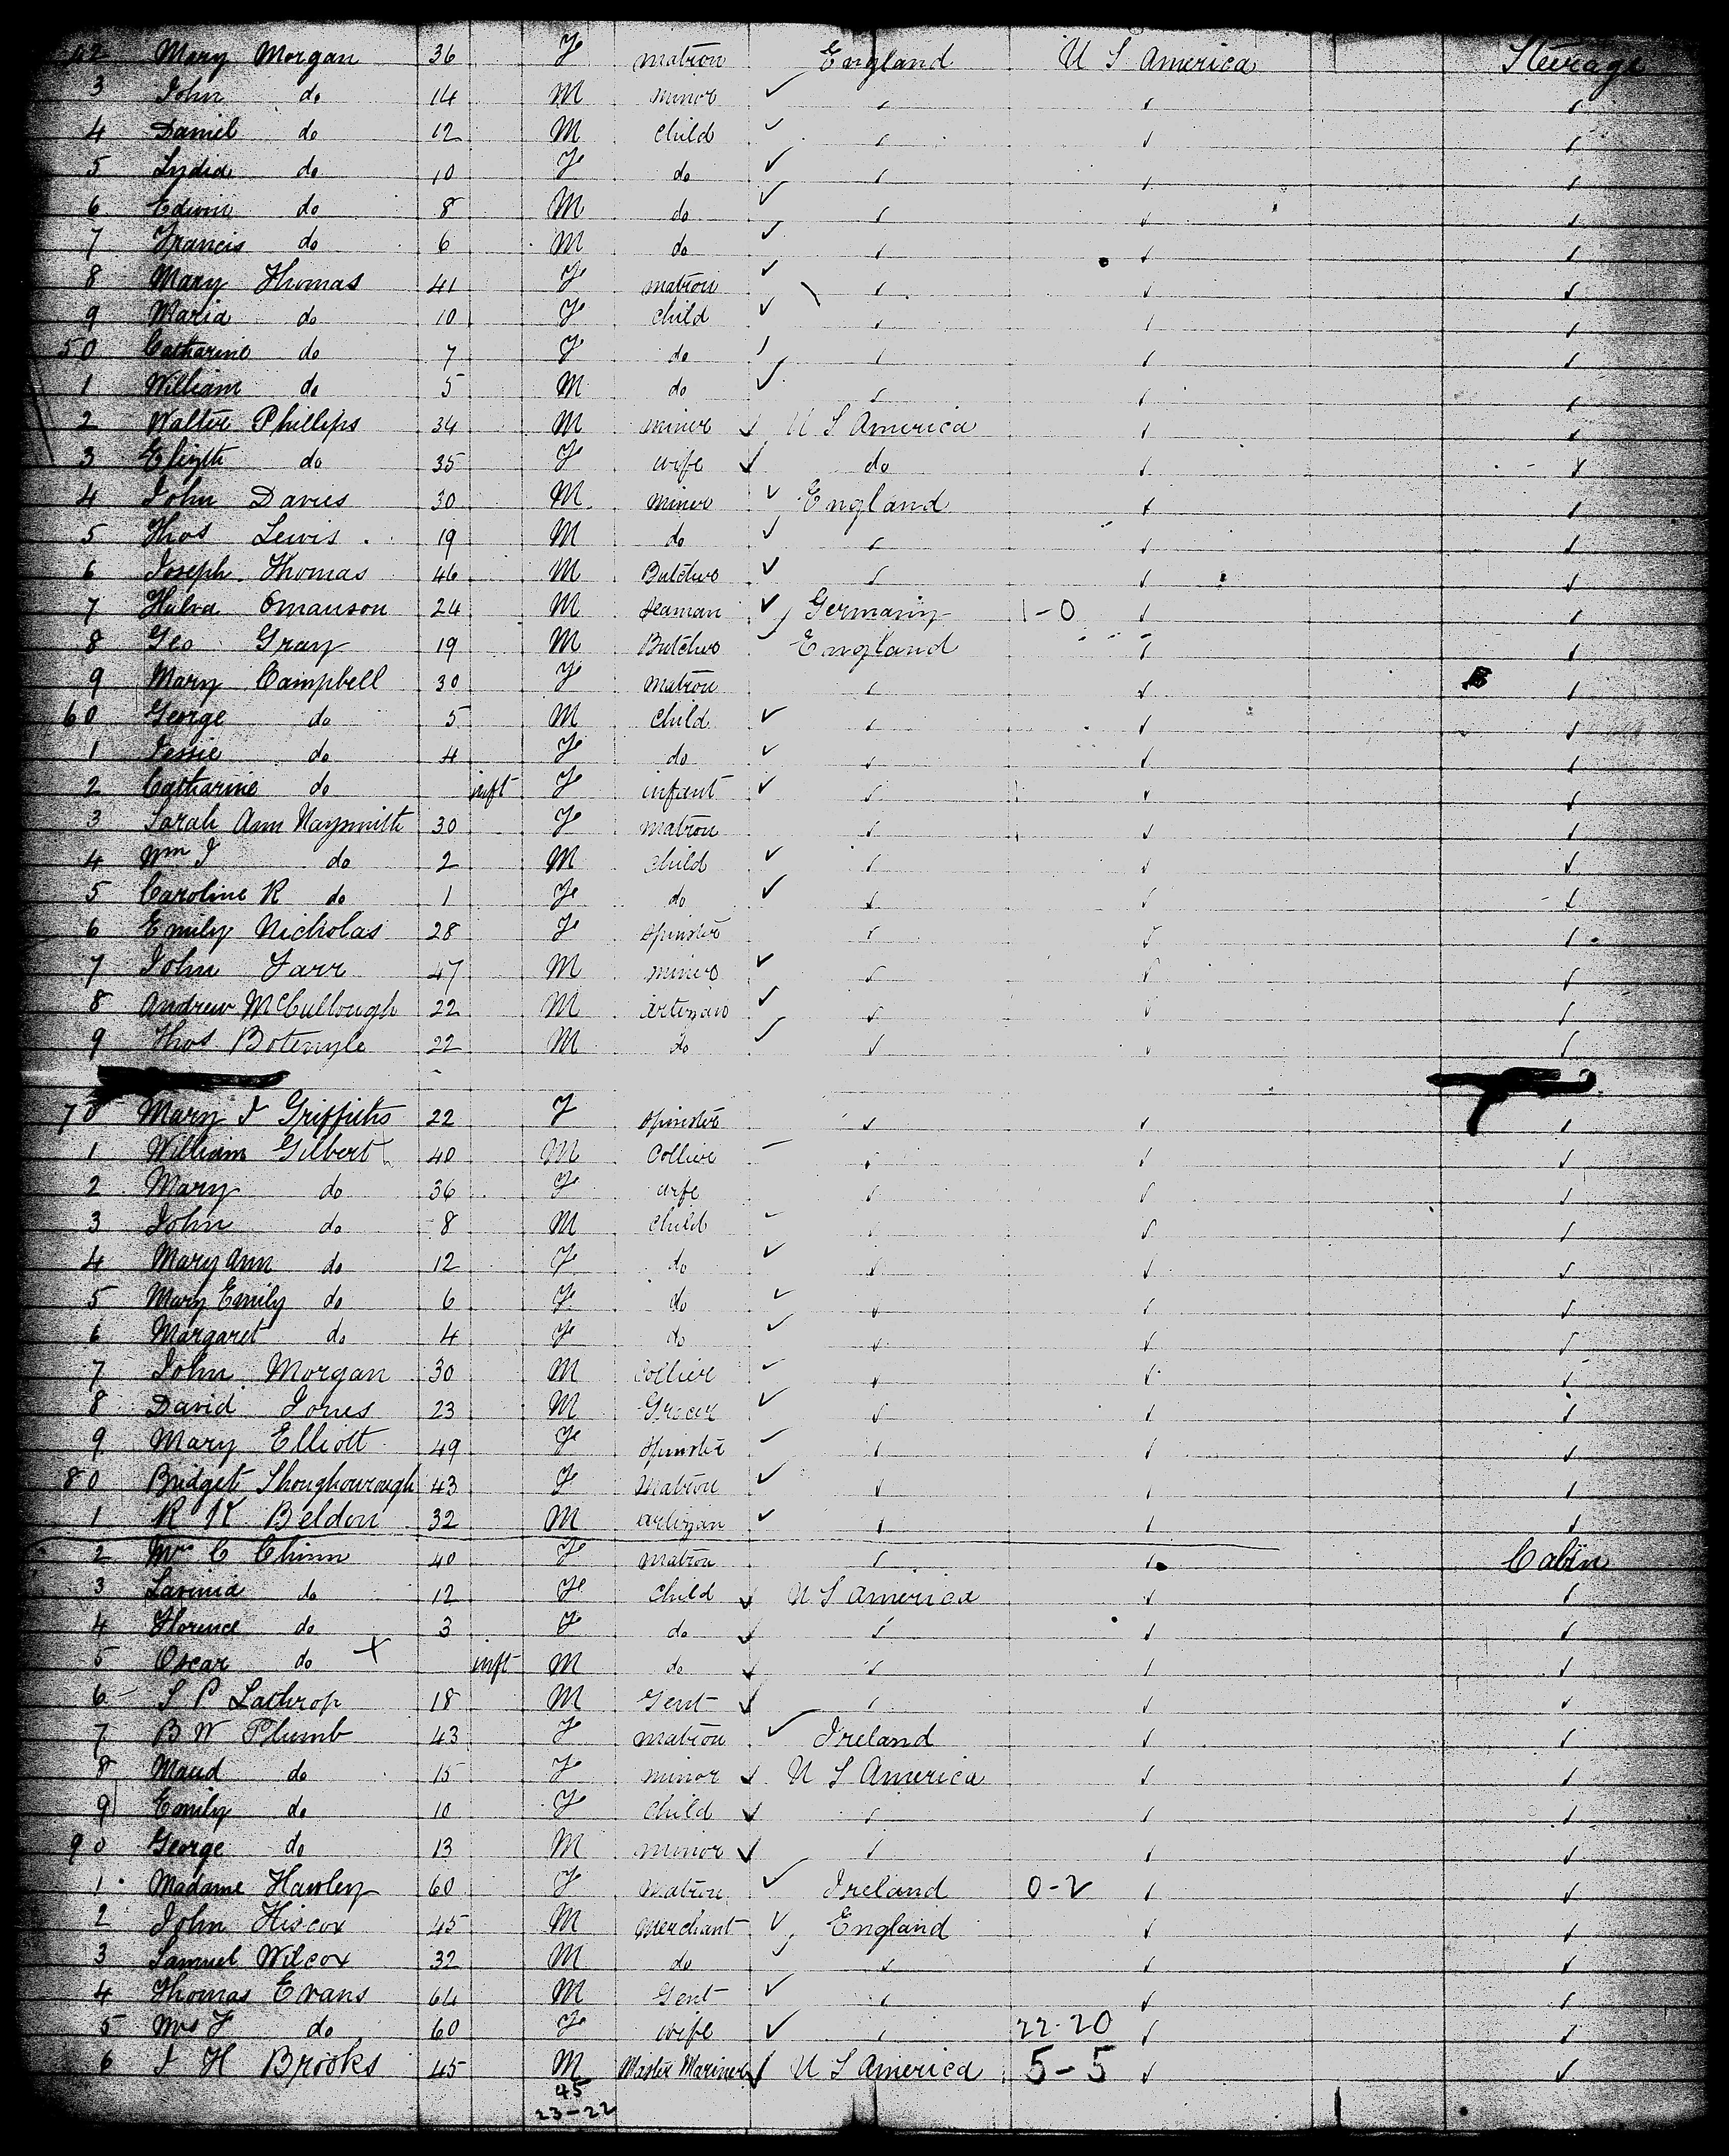 42 Mary Morgan 36 F matron England U S America Steerage
3 John do 14 M minor ✓ " " "
4 Daniel do 12 M child ✓ " " "
5 Lydia do 10 F do ✓ " " "
6 Edwin do 8 M do ✓ " " "
7 Francis do 6 M do ✓ " " "
8 Mary Thomas 41 F matron ✓ " " "
9 Maria do 10 F child ✓ " " "
50 Catharine do 7 F do ✓ " " "
1 William do 5 M do ✓ " " "
2 Walter Phillips 34 M miner ✓ U S America " "
3 Elizth do 35 F wife ✓ do " "
4 John Davies 30 M miner ✓ England " "
5 Thos Lewis 19 M do ✓ " " "
6 Joseph Thomas 46 M Butcher ✓ " " "
7 Omanson 24 M Seaman ✓ Germany 1-0 " "
8 Geo Gray 19 M Butcher ✓ England " "
9 Mary Campbell 30 F matron " " "
60 George do 5 M child ✓ " " "
1 Jessie do 4 F do ✓ " " "
2 Catharine do inft F infant ✓ " " "
3 Sarah Ann Naysmith 30 F matron " " "
4 Wm J do 2 M child ✓ " " "
5 Caroline R do 1 F do ✓ " " "
6 Emily Nicholas 28 F spinster " " "
7 John Farr 47 M miner ✓ " " "
8 Andrew McCullough 22 M artizan ✓ " " "
9 Thos 22 M do ✓ " " "
70 Mary J Griffiths 22 F spinster " " "
1 William Gilbert 40 M Collier " " "
2 Mary do 36 F wife " " "
3 John do 8 M child ✓ " " "
4 Mary Ann do 12 F do ✓ " " "
5 Mary Emily do 6 F do ✓ " " "
6 Margaret do 4 F do ✓ " " "
7 John Morgan 30 M Collier ✓ " " "
8 David Jones 23 M Grocer ✓ " " "
9 Mary Elliott 49 F spinster ✓ " " "
80 Bridget 43 F Matron ✓ " " "
1 R K Beldon 32 M artizan ✓ " " "
2 Mrs C Chinn 40 F matron " " Cabin
3 Lavinia do 12 F Child ✓ U S America " "
4 Florence do 3 F do ✓ " " "
5 Oscar do X inft M do ✓ " " "
6 S P Lathrop 18 M Gent ✓ " " "
7 B W Plumb 43 F matron ✓ Ireland " "
8 Maud do 15 F minor ✓ U S America " "
9 Emily do 10 F Child ✓ " " "
90 George do 13 M minor ✓ " " "
1 Madame Hawley 60 F Matron ✓ Ireland 0-2 " "
2 John Hiscox 45 M Merchant ✓ England " "
3 Samuel Wilcox 32 M do ✓ " " "
4 Thomas Evans 64 M Gent ✓ " " "
5 Mrs F do 60 F wife ✓ " 22-20 " "
6 J H Brooks 45 M Master Mariner ✓ U S America 5-5 " "
45
23-22